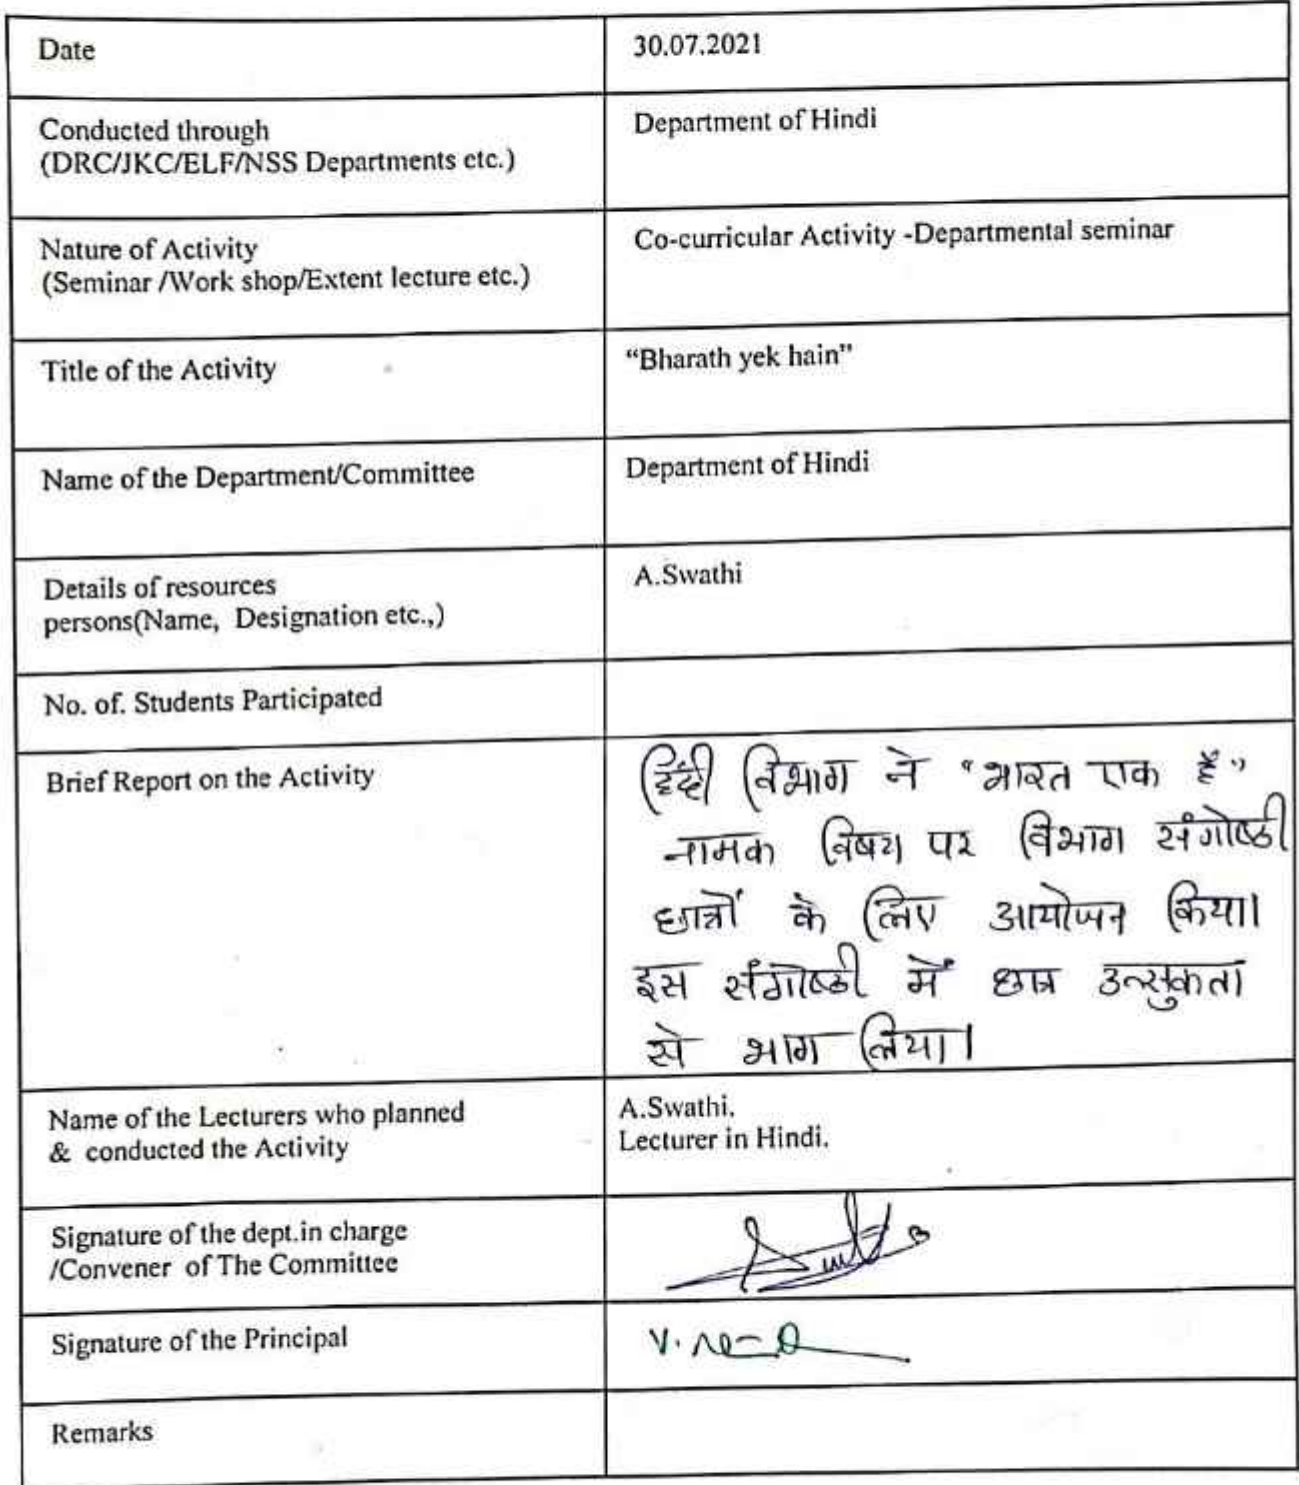 Date
30.07.2021
Conducted through
(DRC/JKC/ELF/NSS Departments etc.)
Department of Hindi
Nature of Activity
(Seminar /Work shop/Extent lecture etc.)
Co-curricular Activity -Departmental seminar
Title of the Activity
“Bharath yek hain”
Name of the Department/Committee
Department of Hindi
Details of resources
persons(Name, Designation etc.,)
A.Swathi
No. of. Students Participated
Brief Report on the Activity
हिंदी विभाग ने “भारत एक हैं”
नामक विषय पर विभाग संगोष्ठी
छात्रों के लिए आयोजन किया।
इस संगोष्ठी में छात्र उत्सुकता
से भाग लिया।
Name of the Lecturers who planned
& conducted the Activity
A.Swathi.
Lecturer in Hindi.
Signature of the dept.in charge
/Convener of The Committee
Signature of the Principal
V.
Remarks